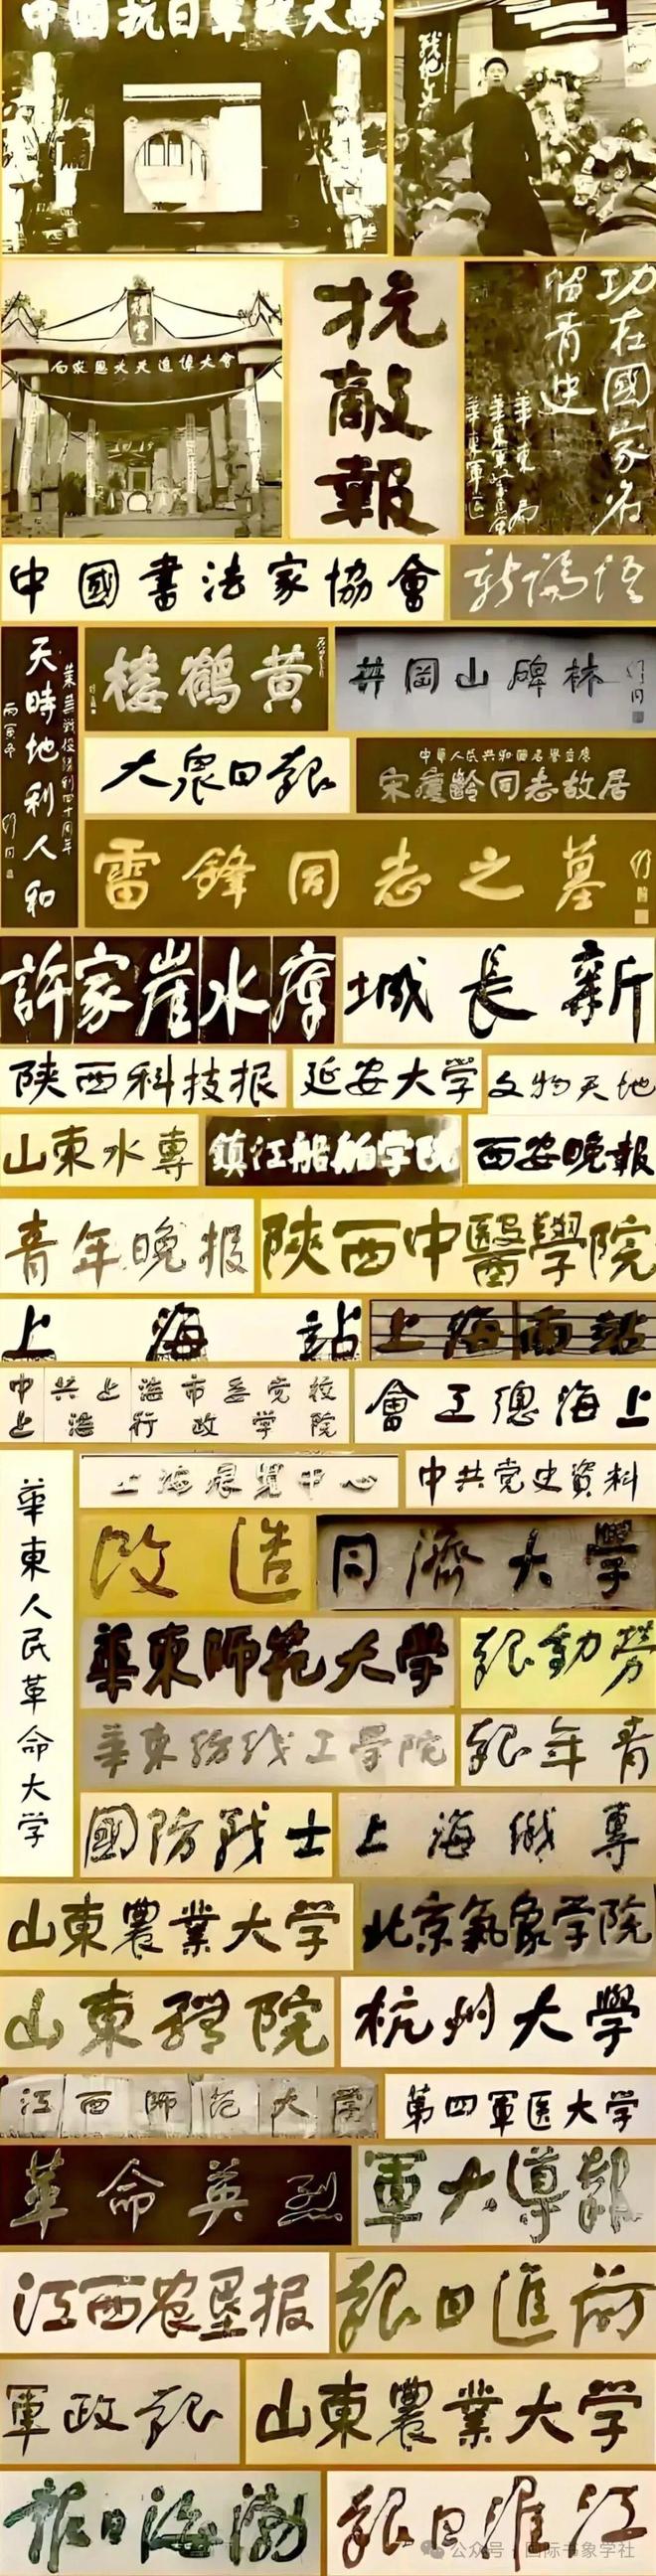 中國抗日軍政大學
抗敵報
功在國家名
留青史
華東局
華東軍區
中國書法家協會
天時地利人和
萊蕪戰役勝利四十周年
丙寅冬 舒同
黄鶴楼
井岡山碑林 舒同
大衆日報
中華人民共和國名譽主席
宋慶齡同志故居
雷鋒同志之墓 舒同
許家崖水庫
新長城
陕西科技报
延安大学
文物天地
山東水專
鎮江船舶学院
西安晚報
青年晚报
陝西中醫學院
上海站
上海南站
中共上海市委党校
上海行政学院
上海總工會
上海展覽中心
中共党史資料
華東人民革命大学
改造
同濟大學
華東師范大学
勞動報
華東紡织工学院
青年報
國防戰士
上海
山東農業大学
北京氣象学院
山東 院
杭州大學
江西師范大学
第四軍医大学
革命英烈
軍大導報
江西农垦报
前進日報
軍政報
山東農業大学
渤海日報
江淮日報
公众号：国际书象学社